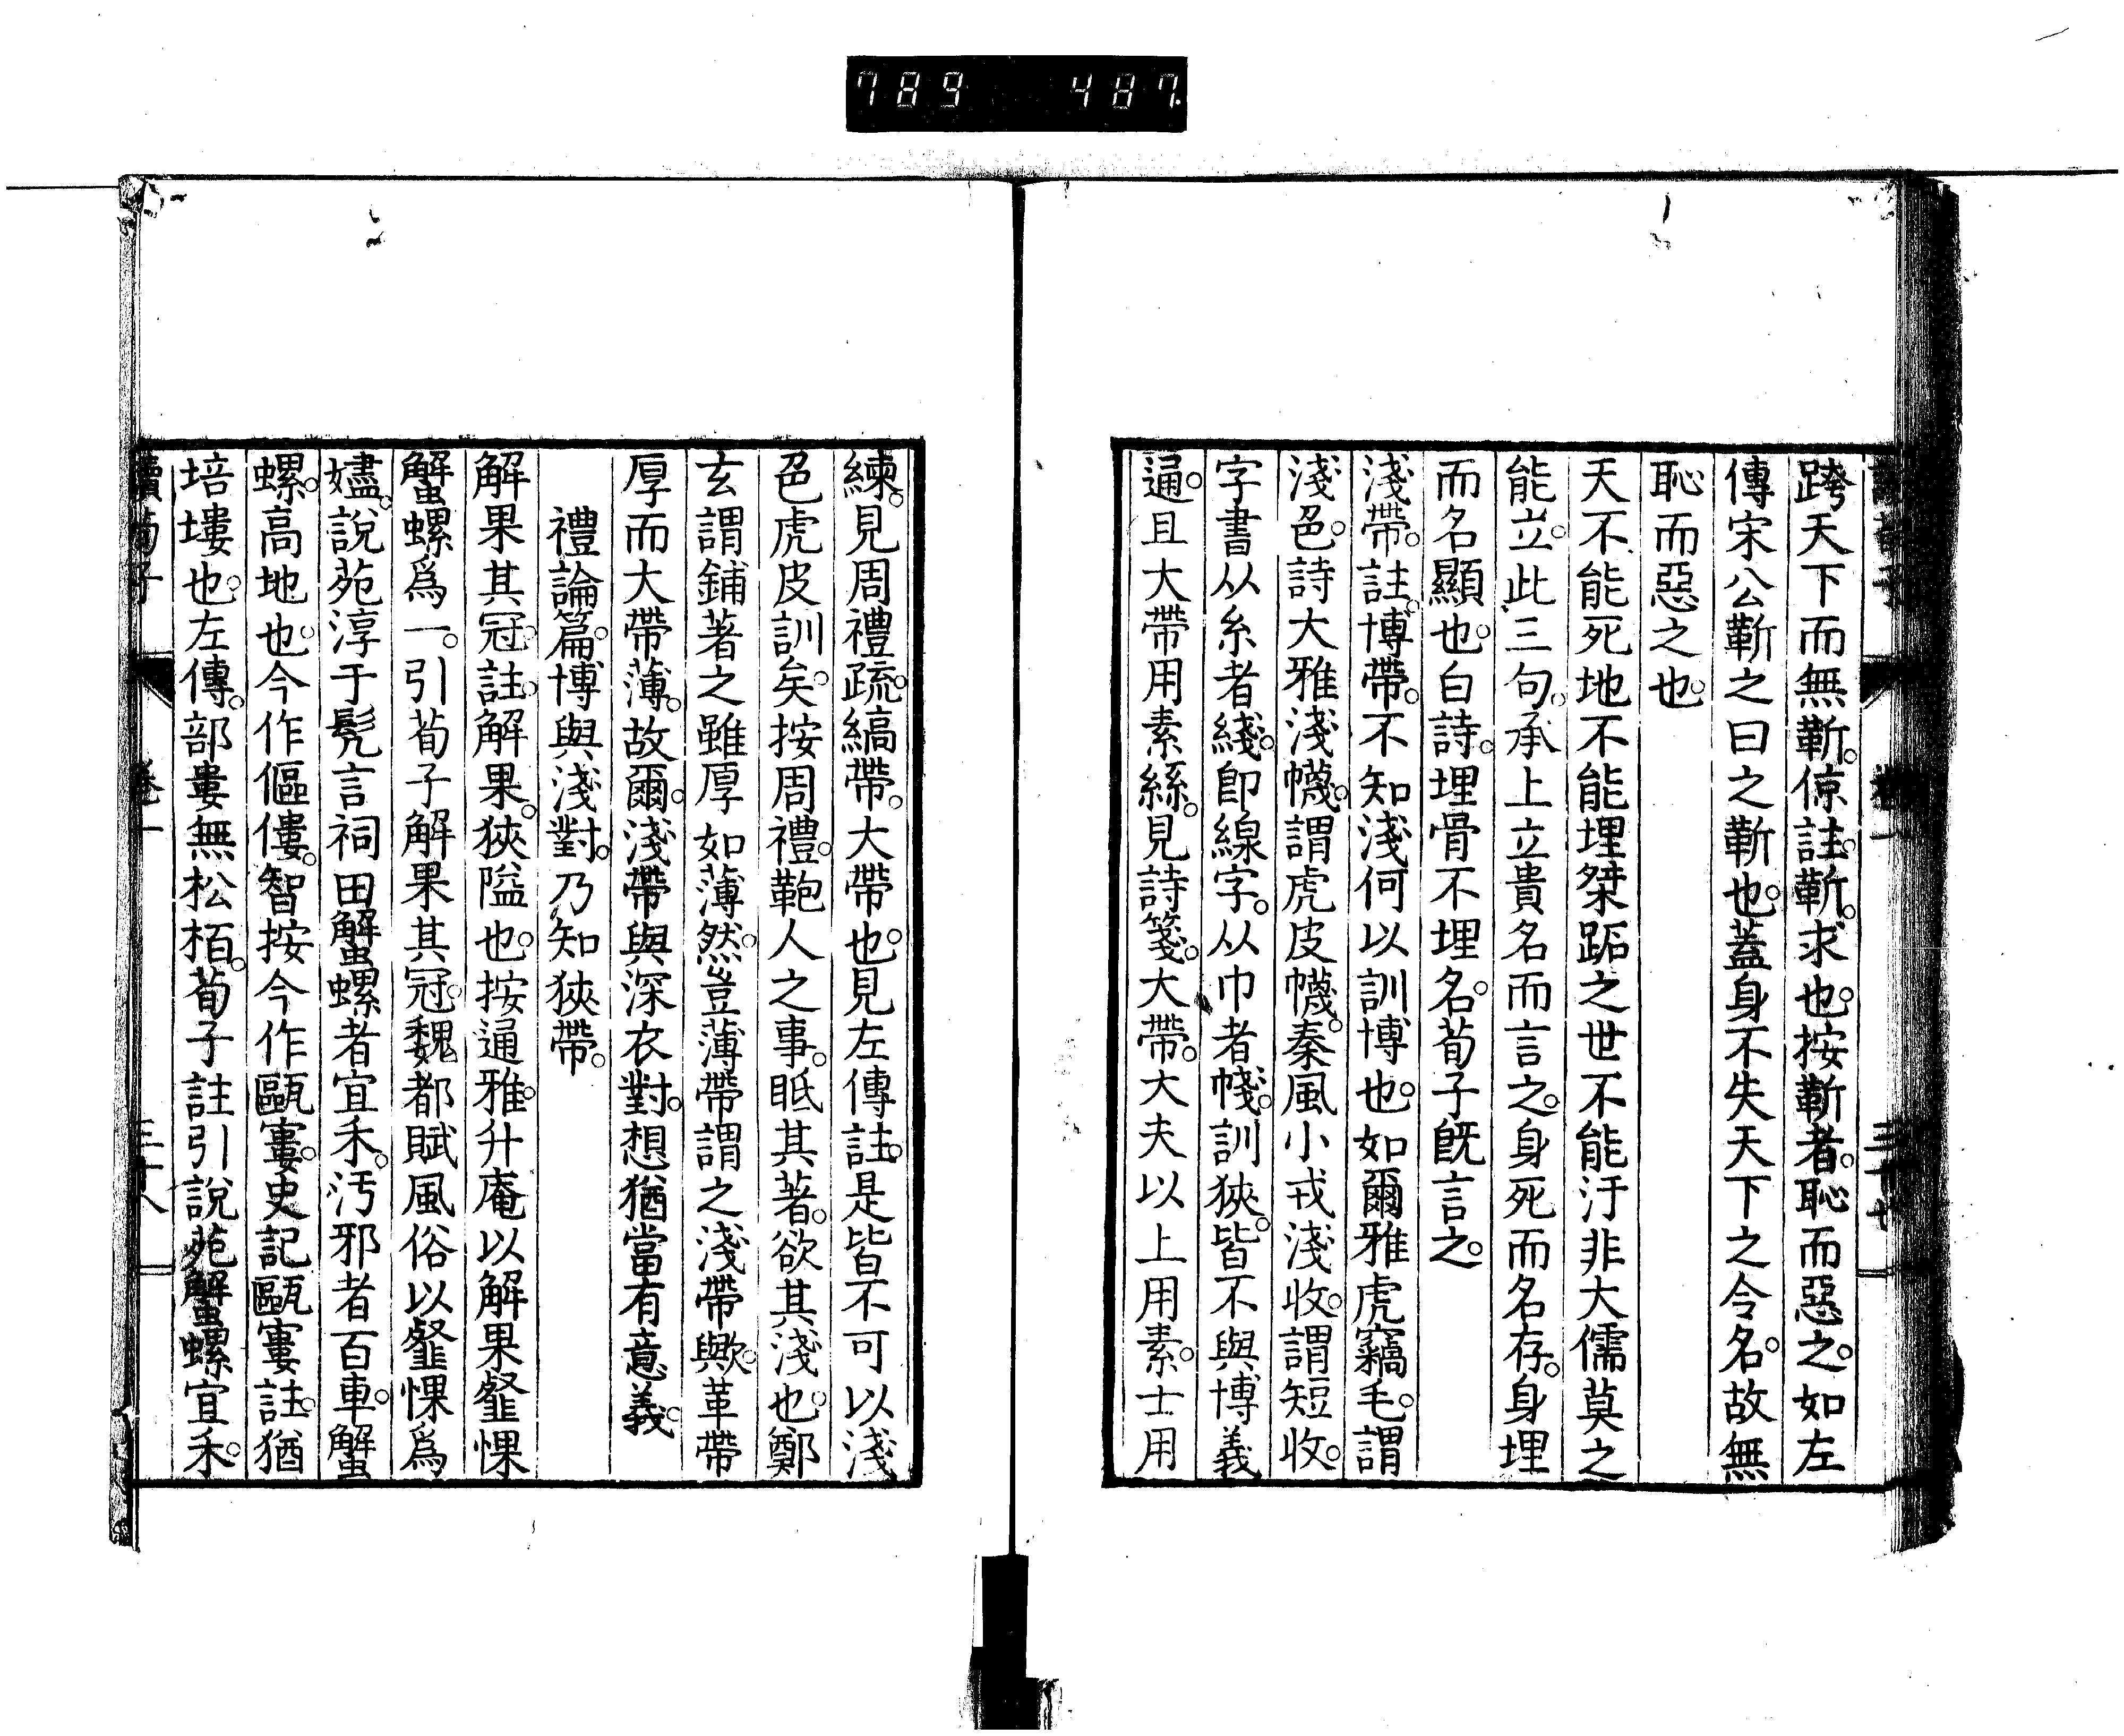 789 487.
跨天下而無靳。倞註。靳。求也。按靳者。恥而惡之。如左
傳宋公靳之曰之靳也。蓋身不失天下之令名。故無
恥而惡之也。
天不能死地不能埋桀跖之世不能汙非大儒莫之
能立。此三句。承上立貴名而言之。身死而名存。身埋
而名顯也。白詩。埋骨不埋名。荀子既言之。
淺帶。註。博帶。不知淺何以訓博也。如爾雅虎竊毛。謂
淺色。詩大雅淺幭。謂虎皮幭。秦風小戎淺收。謂短收。
字書从糸者綫。卽線字。从巾者帴。訓狹。皆不與博義
通。且大帶用素絲。見詩箋。大帶。大夫以上用素。士用
練。見周禮疏。縞帶。大帶也。見左傳註。是皆不可以淺
色虎皮訓矣。按周禮。鞄人之事。眡其著。欲其淺也。鄭
玄謂鋪著之雖厚如薄然。豈薄帶謂之淺帶歟。革帶
厚而大帶薄。故爾。淺帶與深衣對。想猶當有意義。
禮論篇。博與淺對。乃知狹帶。
解果其冠。註。解果。狹隘也。按通雅。升庵以解果䪥惈
蠏螺爲一。引荀子解果其冠。魏都賦風俗以䪥惈爲
嫿。說苑淳于髠言祠田蠏螺者宜禾。汚邪者百車。蠏
螺。高地也。今作傴僂。智按今作甌寠。史記甌寠註。猶
培塿也。左傳。部婁無松栢。荀子註引說苑蠏螺宜禾。
讀荀子 卷一 三十八